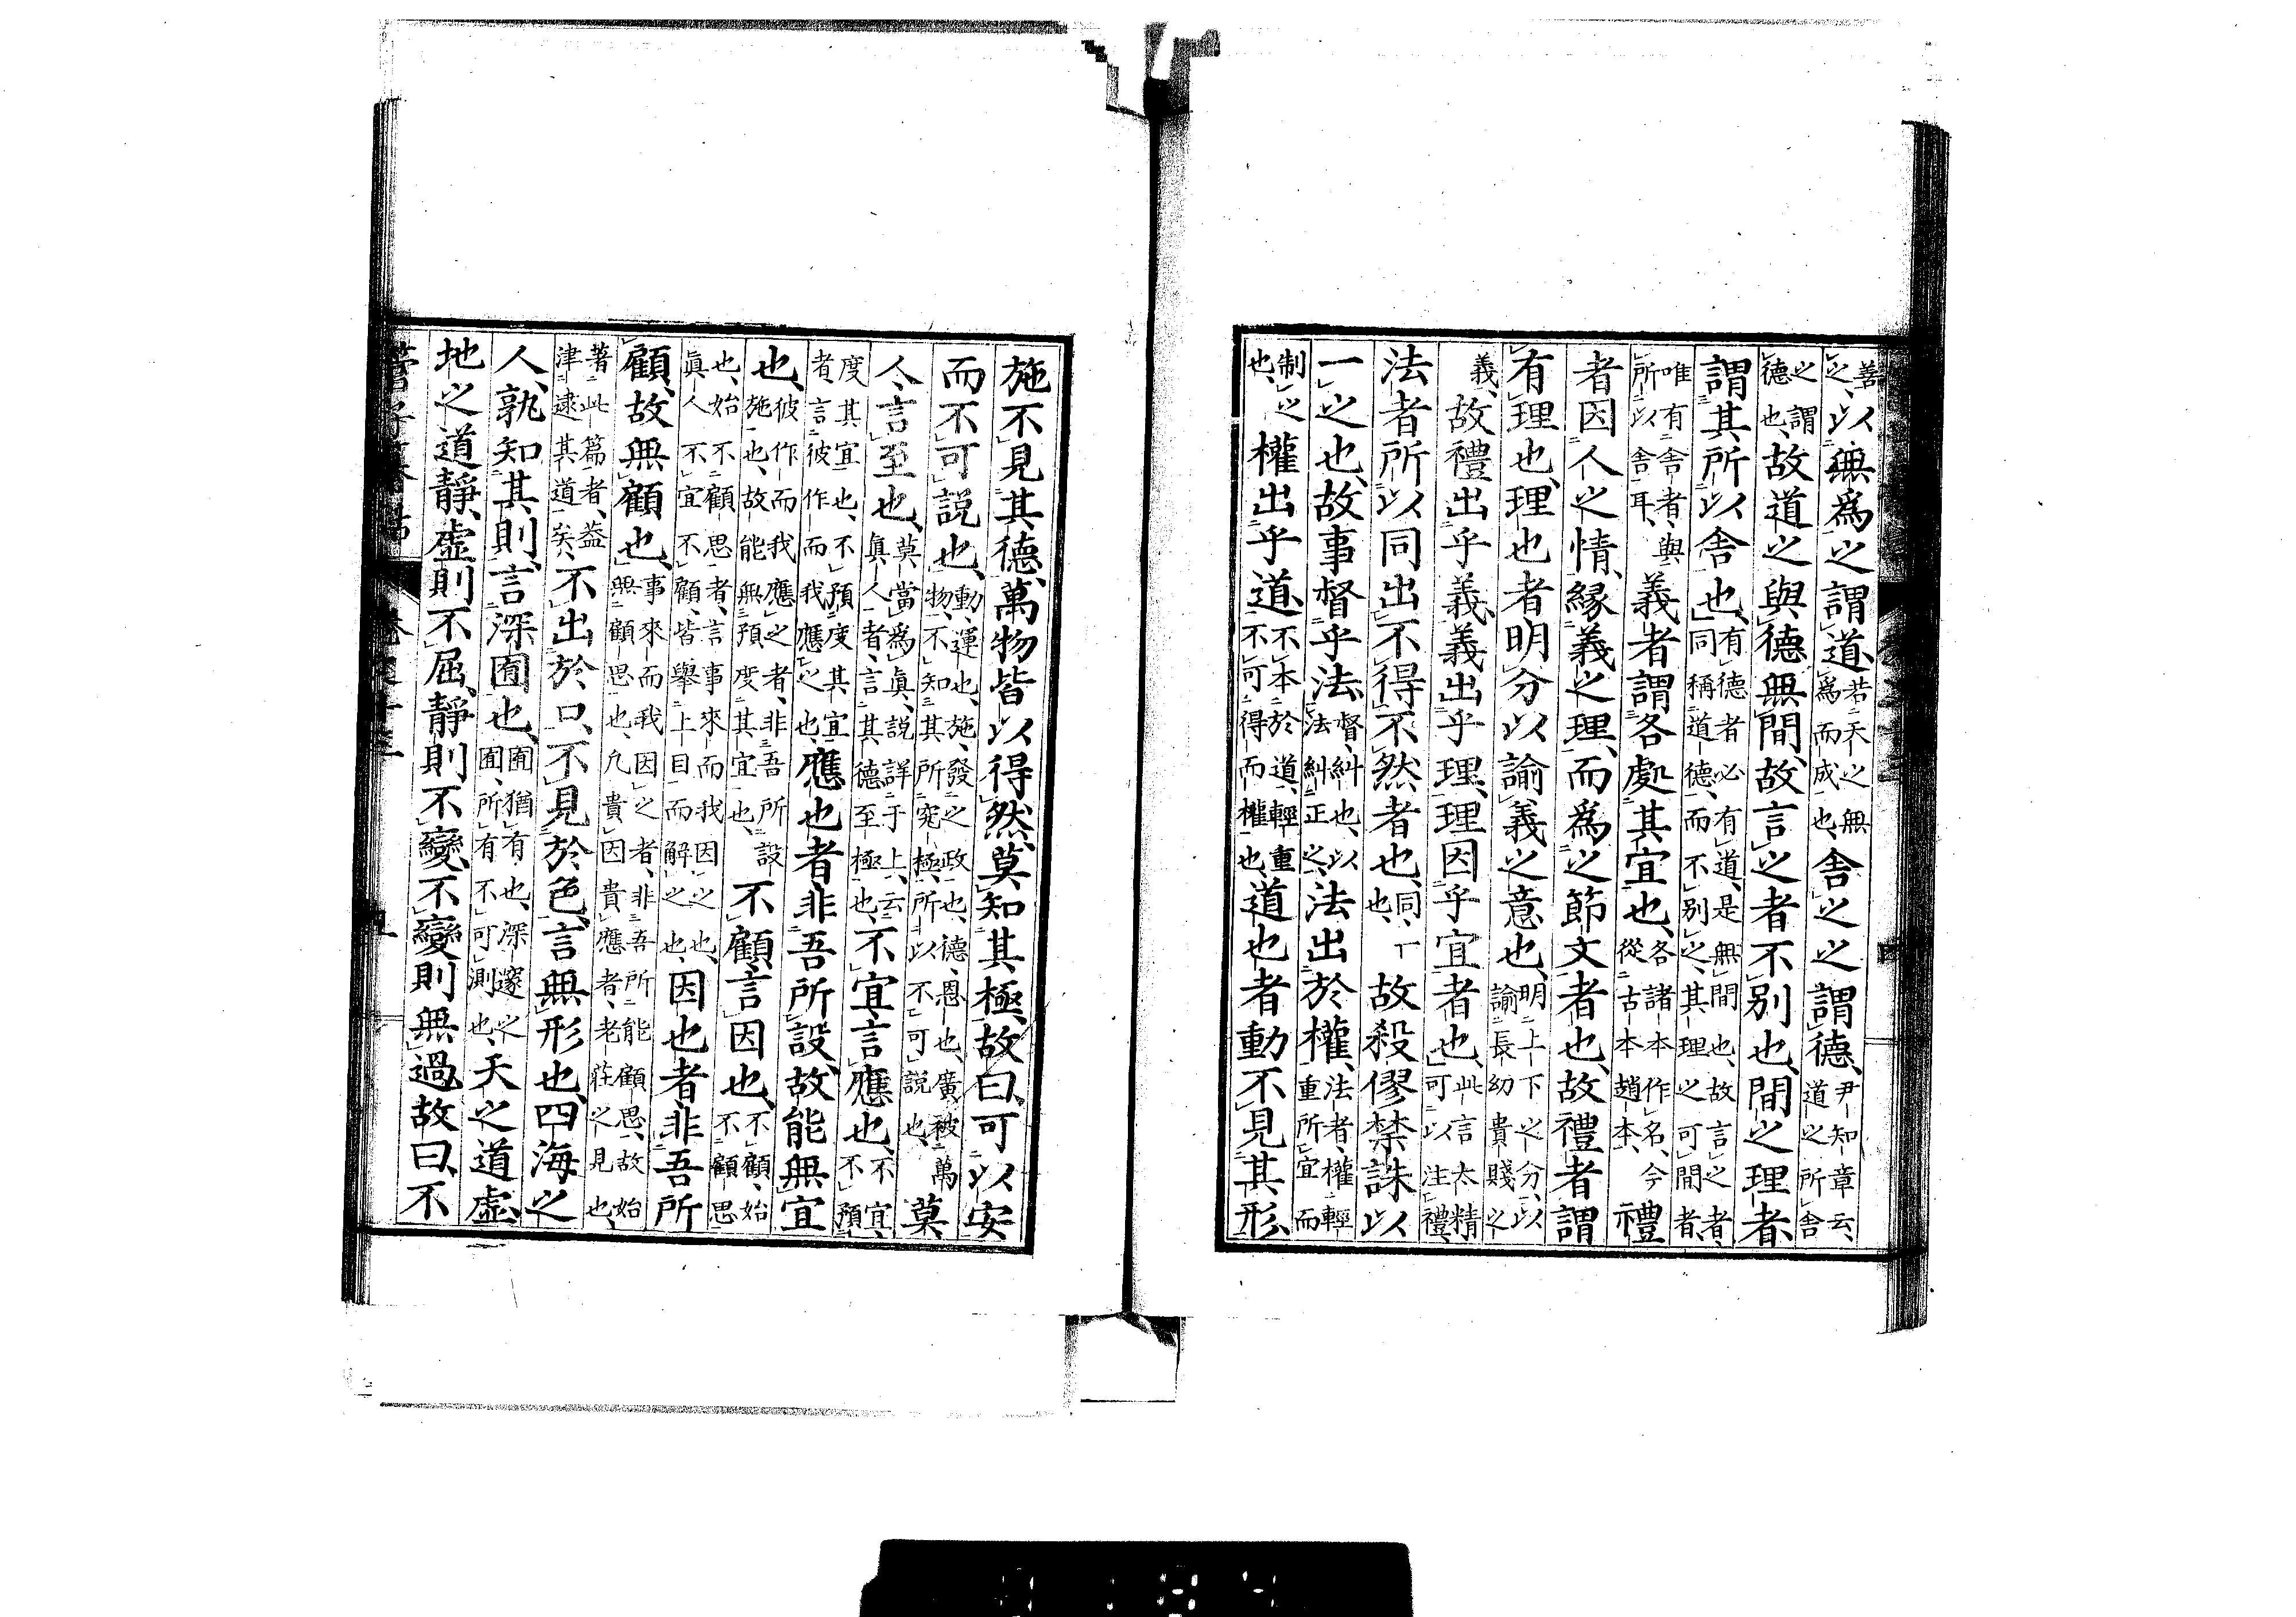 善之、以無爲之謂道、若天之無爲而成也、舍之之謂德、尹知章云、道之所舍
之謂德也、故道之與德無間、故言之者不別也、間之理者、
謂其所以舍也、有德者必有道、是無間也、故言之者、同稱道德、而不別之、其理之可間者、
唯有舍者、與所以舍耳、義者謂各處其宜也、各諸本作名、今從古本趙本、禮
者因人之情、緣義之理、而爲之節文者也、故禮者謂
有理也、理也者明分以諭義之意也、明上下之分、以諭長幼貴賤之
義、故禮出乎義、義出乎理、理因乎宜者也、此言太精可以注禮、
法者所以同出、不得不然者也、同、一也、故殺僇禁誅以
一之也、故事督乎法、督、糾也、以法糾正之、法出於權、法者、權輕重所宜而
制之也、權出乎道、不本於道、輕重不可得而權也、道也者動不見其形、
施不見其德、萬物皆以得然、莫知其極、故曰、可以安
而不可説也、動、運也、施、發之政也、德、恩也、廣被萬物、不知其所究極、所以不可説也、莫
人、言至也、莫當爲眞、説詳于上、云眞人者、言其德至極也、不宜、言應也、不宜、不預
度其宜也、不預度其宜者、言彼作而我應之也、應也者非吾所設、故能無宜
也、彼作而我應之者、非吾所設施也、故能無預度其宜也、不顧、言因也、不顧、始不顧思
也、始不顧思者、言事來而我因之也、眞人不宜不顧、皆舉上目而解之也、因也者非吾所
顧、故無顧也、事來而我因之者、非吾所能顧思、故始無顧思也、凡貴因貴應者、老莊之見也、
著此篇者、蓋津逮其道矣、不出於口、不見於色、言無形也、四海之
人、孰知其則、言深囿也、囿猶有也、深邃之囿、所有不可測也、天之道虛、
地之道靜、虛則不屈、靜則不變、不變則無過、故曰、不